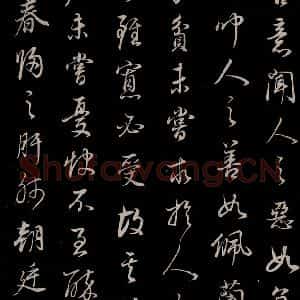 意聞人之惡如
聞人之善如佩蘭
貧未嘗求於人
雖寡必受故其
未嘗憂飲不至醉
春歸之肝肺朝廷
Shufawang.CN